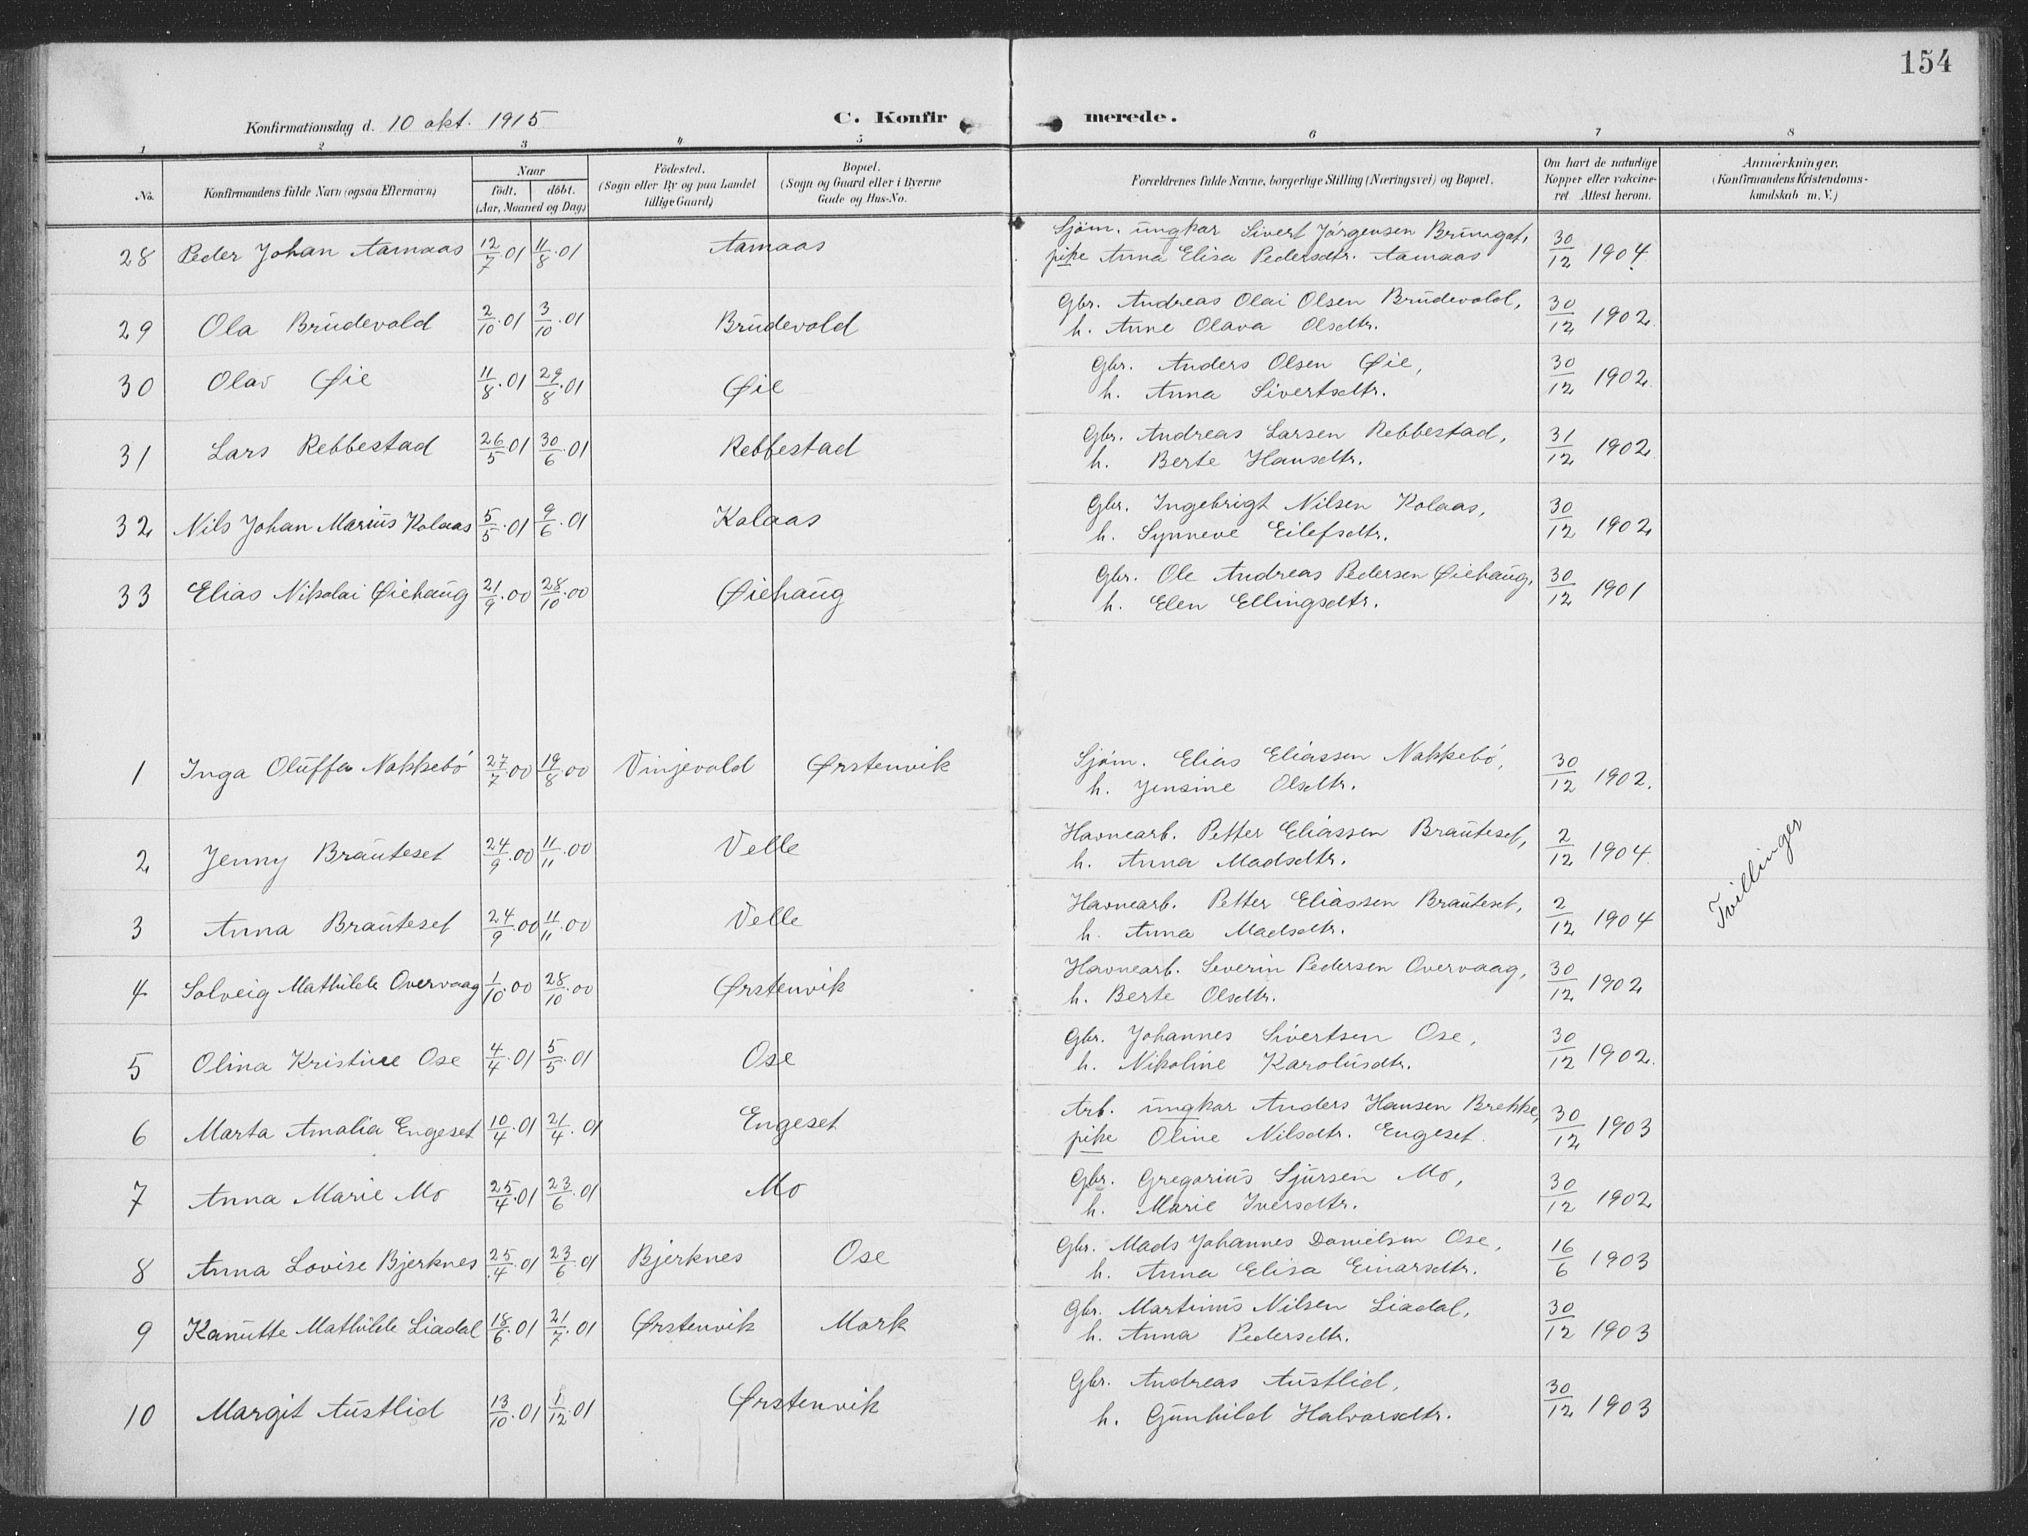 154
Konfirmationsdag d. 10 okt. 1915 C. Konfirmerede.
1 2 3 4 5 6 7 8
No. | Konfirmandens fulde Navn (ogsaa Efternavn) | Naar födt. döbt. (Aar, Maaned og Dag) | Födested. (Sogn eller By og paa Landet tillige Gaard) | Bopæl. (Sogn og Gaard eller i Byerne Gade og Hus-No. | Forældrenes fulde Navne, borgerlige Stilling (Næringsvei) og Bopæl. | Om havt de naturlige Kopper eller vakcineret Attest herom. | Anmærkninger. (Konfirmandens Kristendomskundskab m. V.)
28 Peder Johan Aamaas 12/7.01 11/8.01 Aamaas Sjøm. ungkar Sivert Jørgensen Brungot, 30/12 1904
pike Anna Elisa Pedersdtr. Aamaas
29 Ola Brudevold 2/10.01 3/10.01 Brudevold Gbr. Andreas Olai Olsen Brudevold, 30/12 1902.
h. Anne Olava Olsdtr.
30 Olav Øie 11/8.01 29/8.01 Øie Gbr. Anders Olsen Øie, 30/12 1902.
h. Anna Sivertsdtr.
31 Lars Rebbestad 26/5.01 30/6.01 Rebbestad Gbr. Andreas Larsen Rebbestad, 31/12 1902.
h. Berte Hansdtr.
32 Nils Johan Marius Kolaas 5/5.01 9/6.01 Kolaas Gbr. Ingebrigt Nilsen Kolaas, 30/12 1902
h. Synneve Eilefsdtr.
33 Elias Nikolai Øiehaug 21/9.00 28/10.00 Øiehaug Gbr. Ole Andreas Pedersen Øiehaug, 30/12 1901
h. Elen Ellingsdtr.
1 Inga Oluffa Nakkebö 27/7.00 19/8.00 Vinjevold Ørstenvik Sjøm. Elias Eliassen Nakkebö, 30/12 1902.
h. Jensine Olsdtr.
2 Jenny Brauteset 24/9.00 11/11.00 Velle Havnearb. Petter Eliassen Brauteset, 2/12 1904.
h. Anna Madsdtr.
Tvillinger
3 Anna Brauteset 24/9.00 11/11.00 Velle Havnearb. Petter Eliassen Brauteset, 2/12 1904
h. Anna Madsdtr.
4 Solveig Mathilde Overvaag 1/10.00 28/10.00 Ørstenvik Havnearb. Severin Pedersen Overvaag, 30/12 1902
h. Berte Olsdtr.
5 Olina Kristine Ose 4/4.01 5/5.01 Ose Gbr. Johannes Sivertsen Ose, 30/12 1902.
h. Nikoline Karolusdtr.
6 Marta Amalia Engeset 10/4.01 21/4.01 Engeset Arb. ungkar Anders Hansen Brekke, 30/12 1903
pike Oline Nilsdtr. Engeset.
7 Anna Marie Mo 25/4.01 23/6.01 Mo Gbr. Gregorius Sjursen Mo, 30/12 1902
h. Marie Iversdtr.
8 Anna Lovise Bjerknes 25/4.01 23/6.01 Bjerknes Ose Gbr. Mads Johannes Danielsen Ose, 16/6 1903
h. Anna Elisa Einarsdtr.
9 Kanutte Mathilde Liadal 18/6.01 21/7.01 Ørstenvik Mork Gbr. Martinus Nilsen Liadal, 30/12 1903
h. Anna Pedersdtr.
10 Margit Austlid 13/10.01 1/12.01 Ørstenvik Gbr. Andreas Austlid, 30/12 1903
h. Gunhild Halvorsdtr.